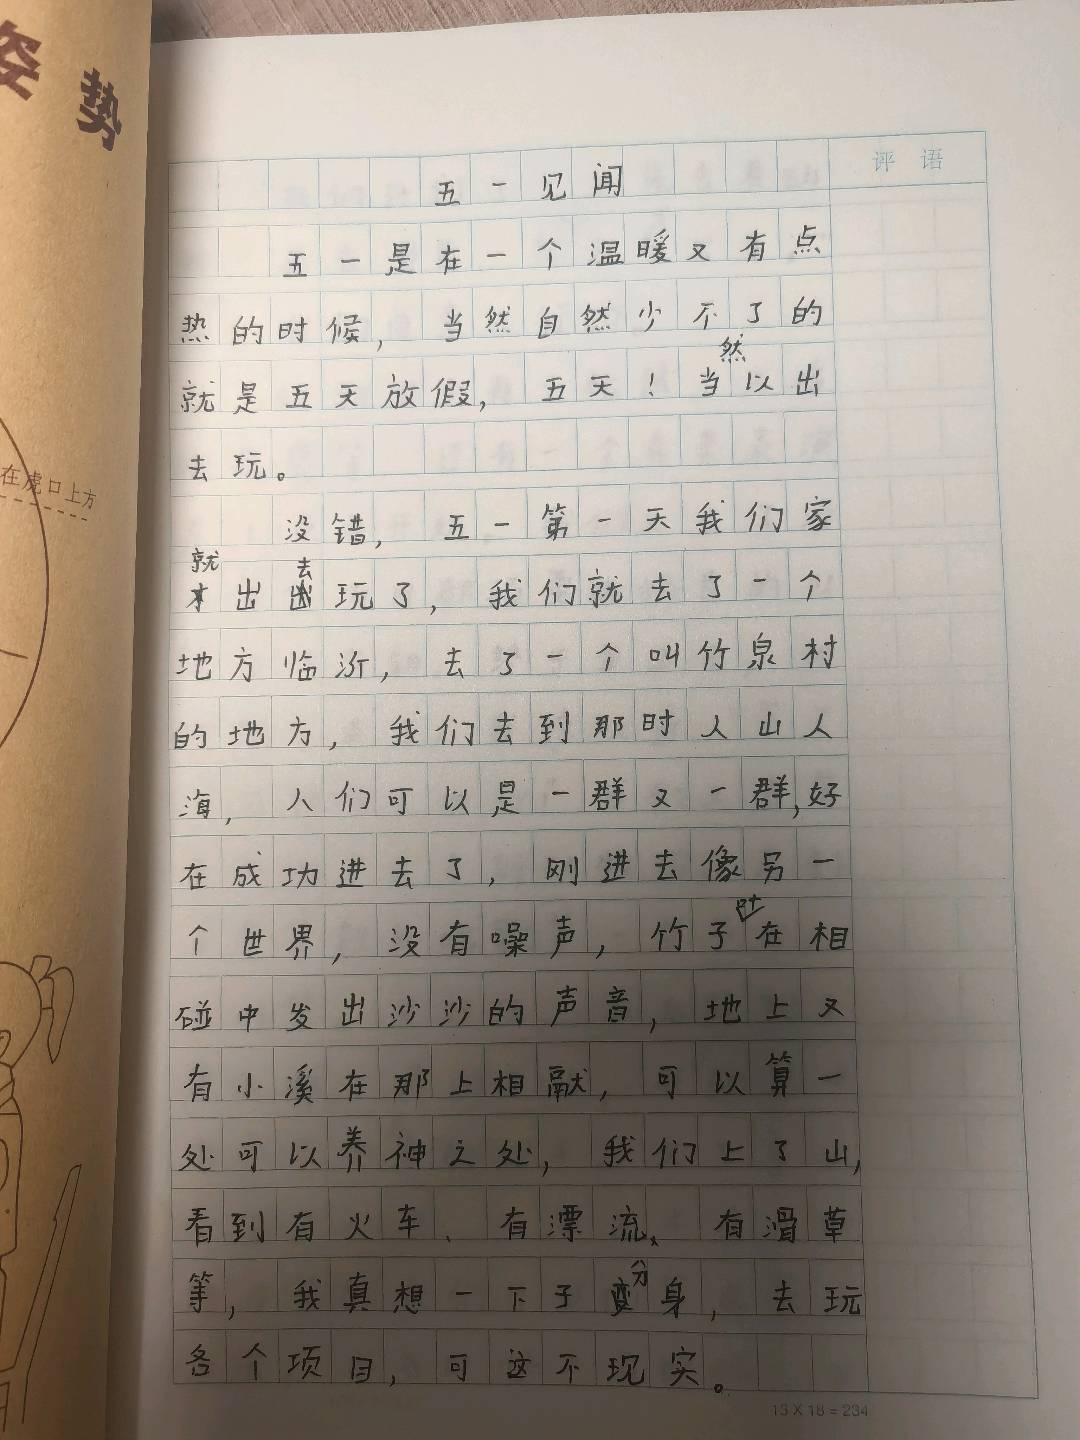 姿势
在虎口上方
评语
五一见闻
五一是在一个温暖又有点
热的时候，当然自然少不了的
就是五天放假，五天！当然以出
去玩。
没错，五一第一天我们家
就出去玩了，我们就去了一个
地方临沂，去了一个叫竹泉村
的地方，我们去到那时人山人
海，人们可以是一群又一群，好
在成功进去了，刚进去像另一
个世界，没有噪声，竹子叶在相
碰中发出沙沙的声音，地上又
有小溪在那上相献，可以算一
处可以养神之处，我们上了山，
看到有火车、有漂流、有滑草
等，我真想一下子分身，去玩
各个项目，可这不现实。
13×18=234